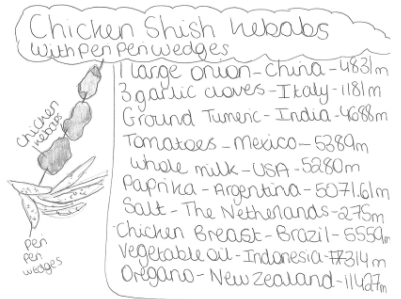 Chicken Shish kebabs
with Pen Pen wedges
1 large onion - China - 4831m
3 garlic cloves - Italy - 1181m
Ground Tumeric - India - 4688m
Tomatoes - Mexico - 5389m
Whole milk - USA - 5280m
Paprika - Argentina - 5071.61m
Salt - The Netherlands - 275m
Chicken Breast - Brazil - 5559m
Vegetable oil - Indonesia - 7314m
Oregano - New Zealand - 11427m
Chicken
kebabs
Pen
Pen
wedges